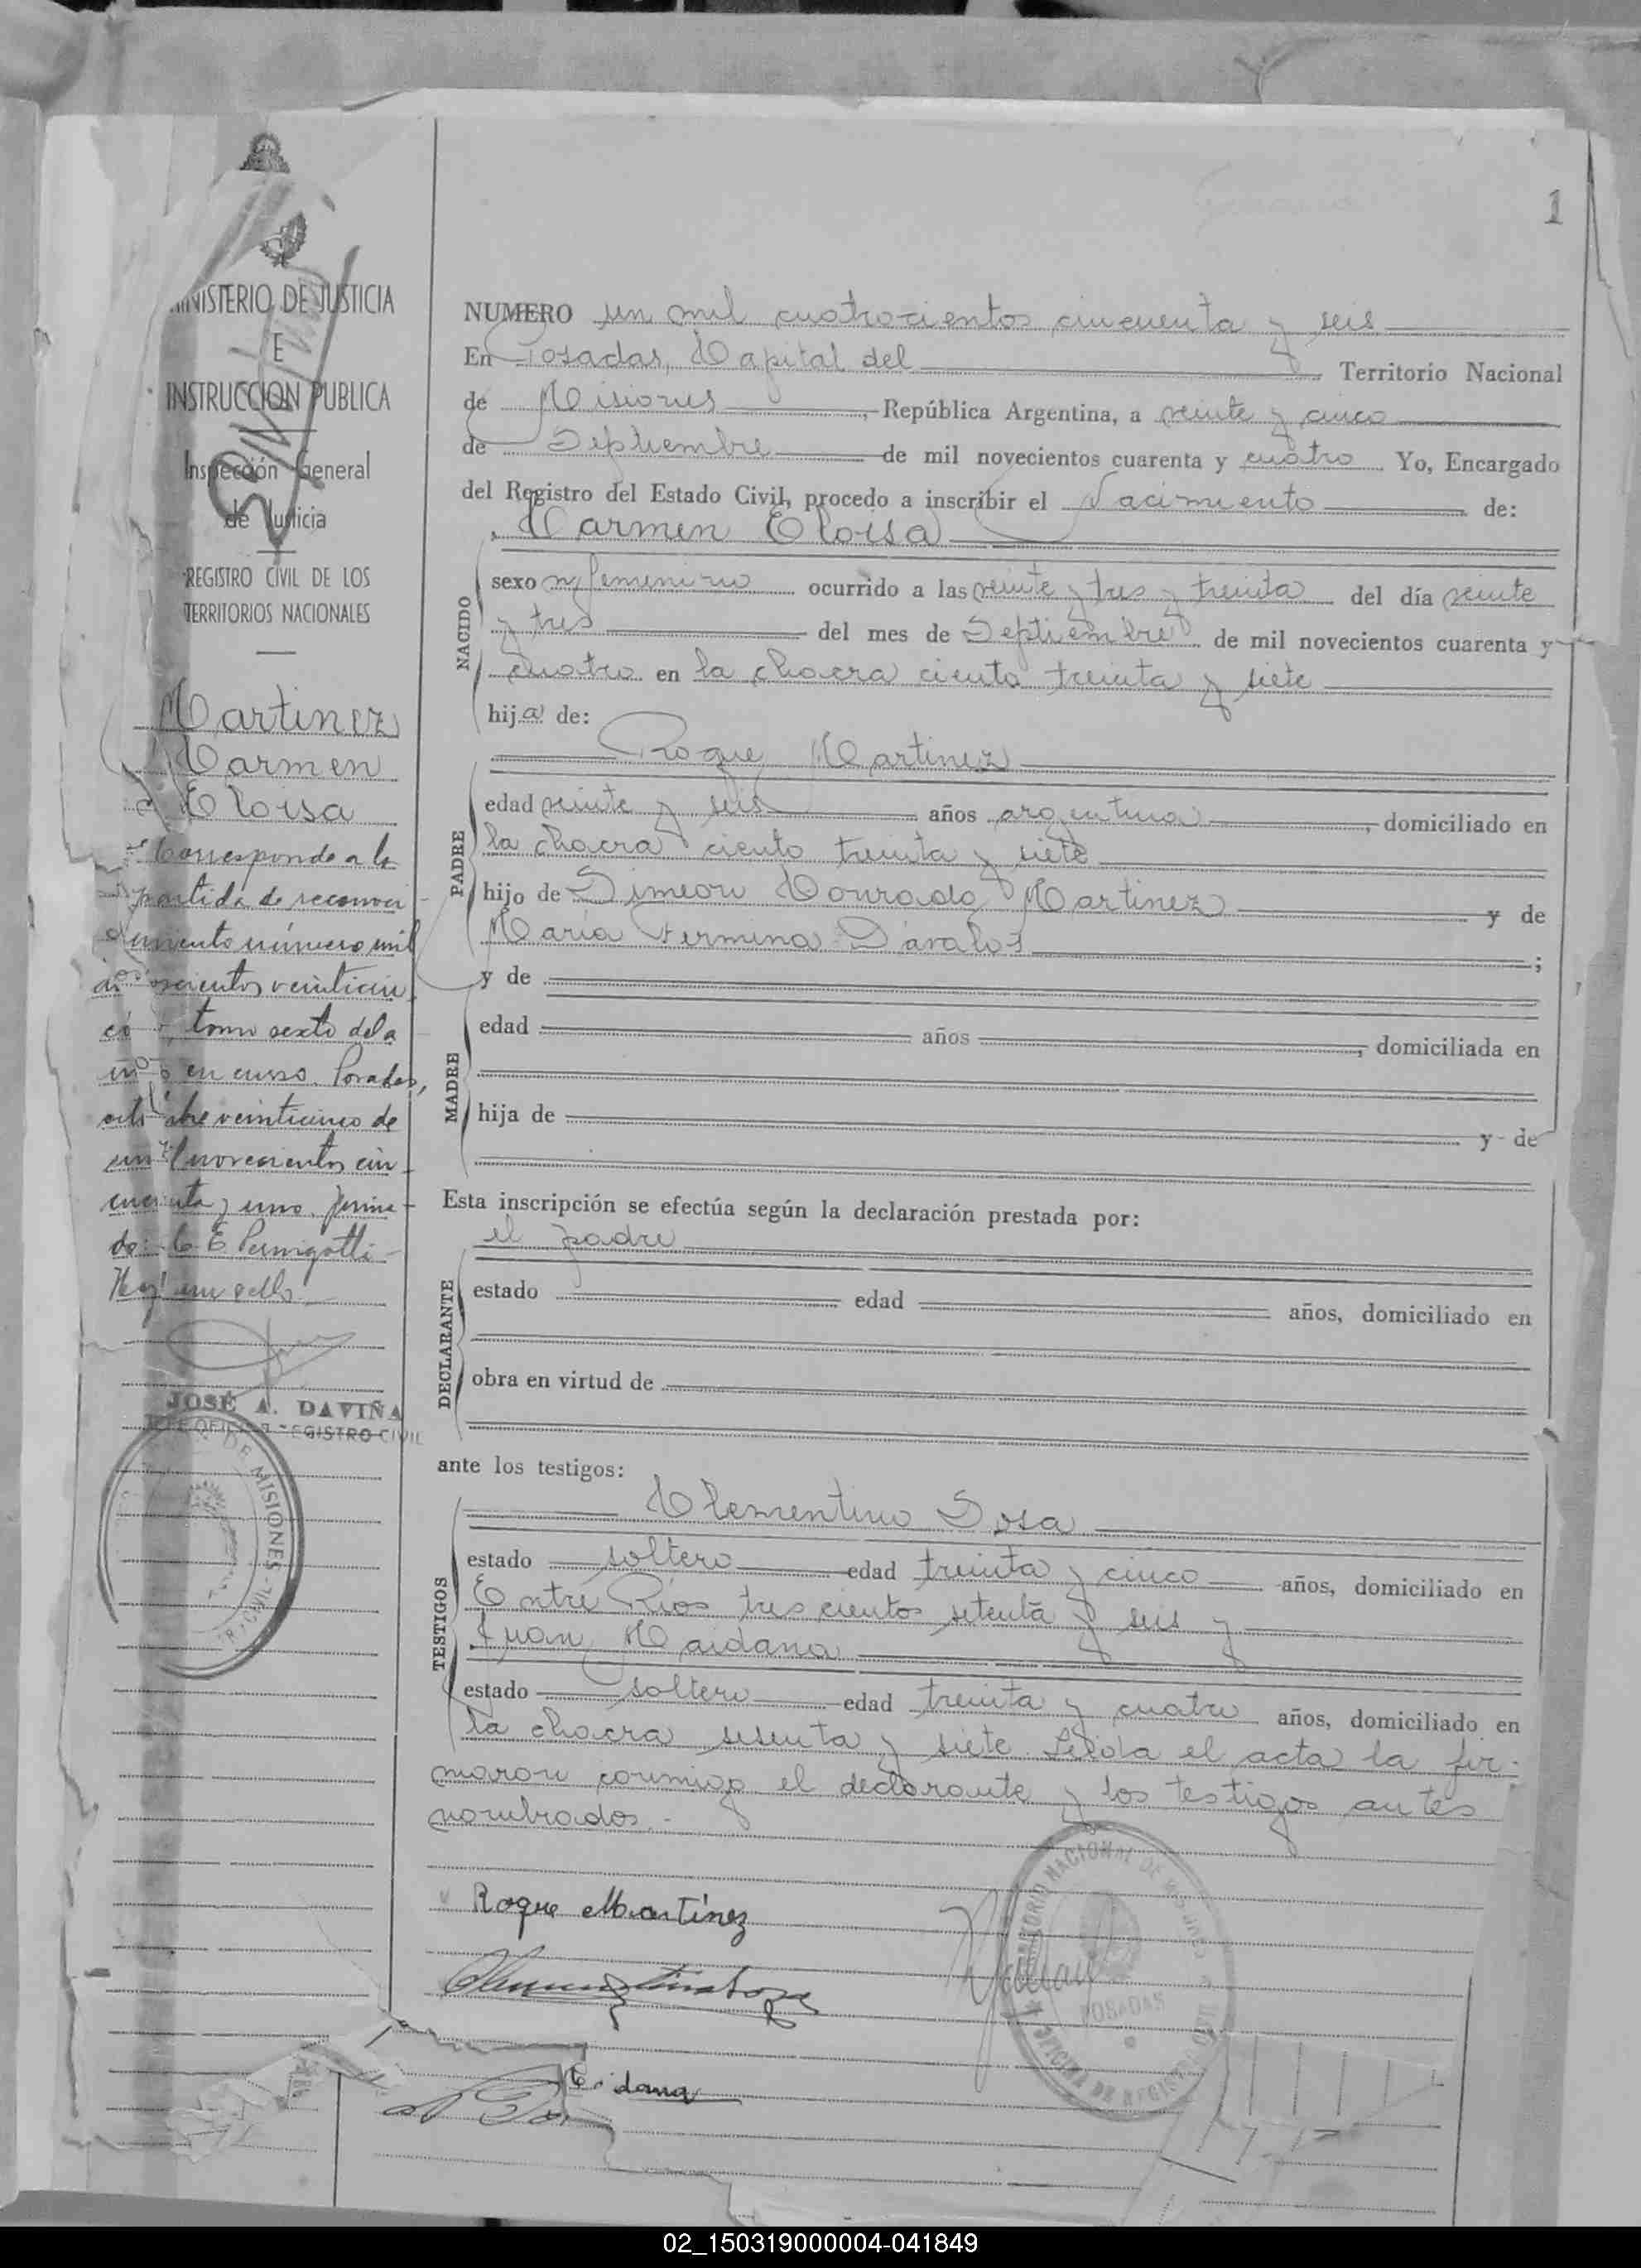 1
MINISTERIO DE JUSTICIA
E
INSTRUCCION PUBLICA
Inspección General
de Justicia
REGISTRO CIVIL DE LOS
TERRITORIOS NACIONALES
Martinez
Carmen
Eloisa
Corresponde a la
partida de reconoci
miento número mil
doscientos veinticin
co, tomo sexto del a
ño en curso. Posadas,
octubre veinticinco de
mil novecientos cin
cuenta y uno. firma
do: C E Pernigotti
Hay un sello
JOSÉ A. DAVIÑA
REGISTRO CIVIL
DE MISIONES
NUMERO un mil cuatrocientos cincuenta y seis
En Posadas, Capital del Territorio Nacional
de Misiones, República Argentina, a veinte y cinco
de Septiembre de mil novecientos cuarenta y cuatro Yo, Encargado
del Registro del Estado Civil, procedo a inscribir el Nacimiento de:
Carmen Eloisa
NACIDO
sexo femenino ocurrido a las veinte y tres y treinta del día veinte
y tres del mes de Septiembre de mil novecientos cuarenta y
cuatro en la chacra ciento treinta y siete
hija de:
Roque Martinez
PADRE
edad veinte y seis años argentino, domiciliado en
la chacra ciento treinta y siete
hijo de Simeon Conrado Martinez y de
Maria Fermina Dávalos;
y de
MADRE
edad años, domiciliada en
hija de y de
Esta inscripción se efectúa según la declaración prestada por:
el padre
DECLARANTE
estado edad años, domiciliado en
obra en virtud de
ante los testigos:
Clementino Sosa
TESTIGOS
estado soltero edad treinta y cinco años, domiciliado en
Entre Rios tres cientos setenta y seis y
Juan Maidana
estado soltero edad treinta y cuatro años, domiciliado en
la chacra sesenta y siete. Leida el acta la fir-
maron conmigo el declarante y los testigos antes
nombrados.-
Roque Martínez
TERRITORIO NACIONAL DE MISIONES
POSADAS
OFICINA DE REGISTRO CIVIL
02_150319000004-041849